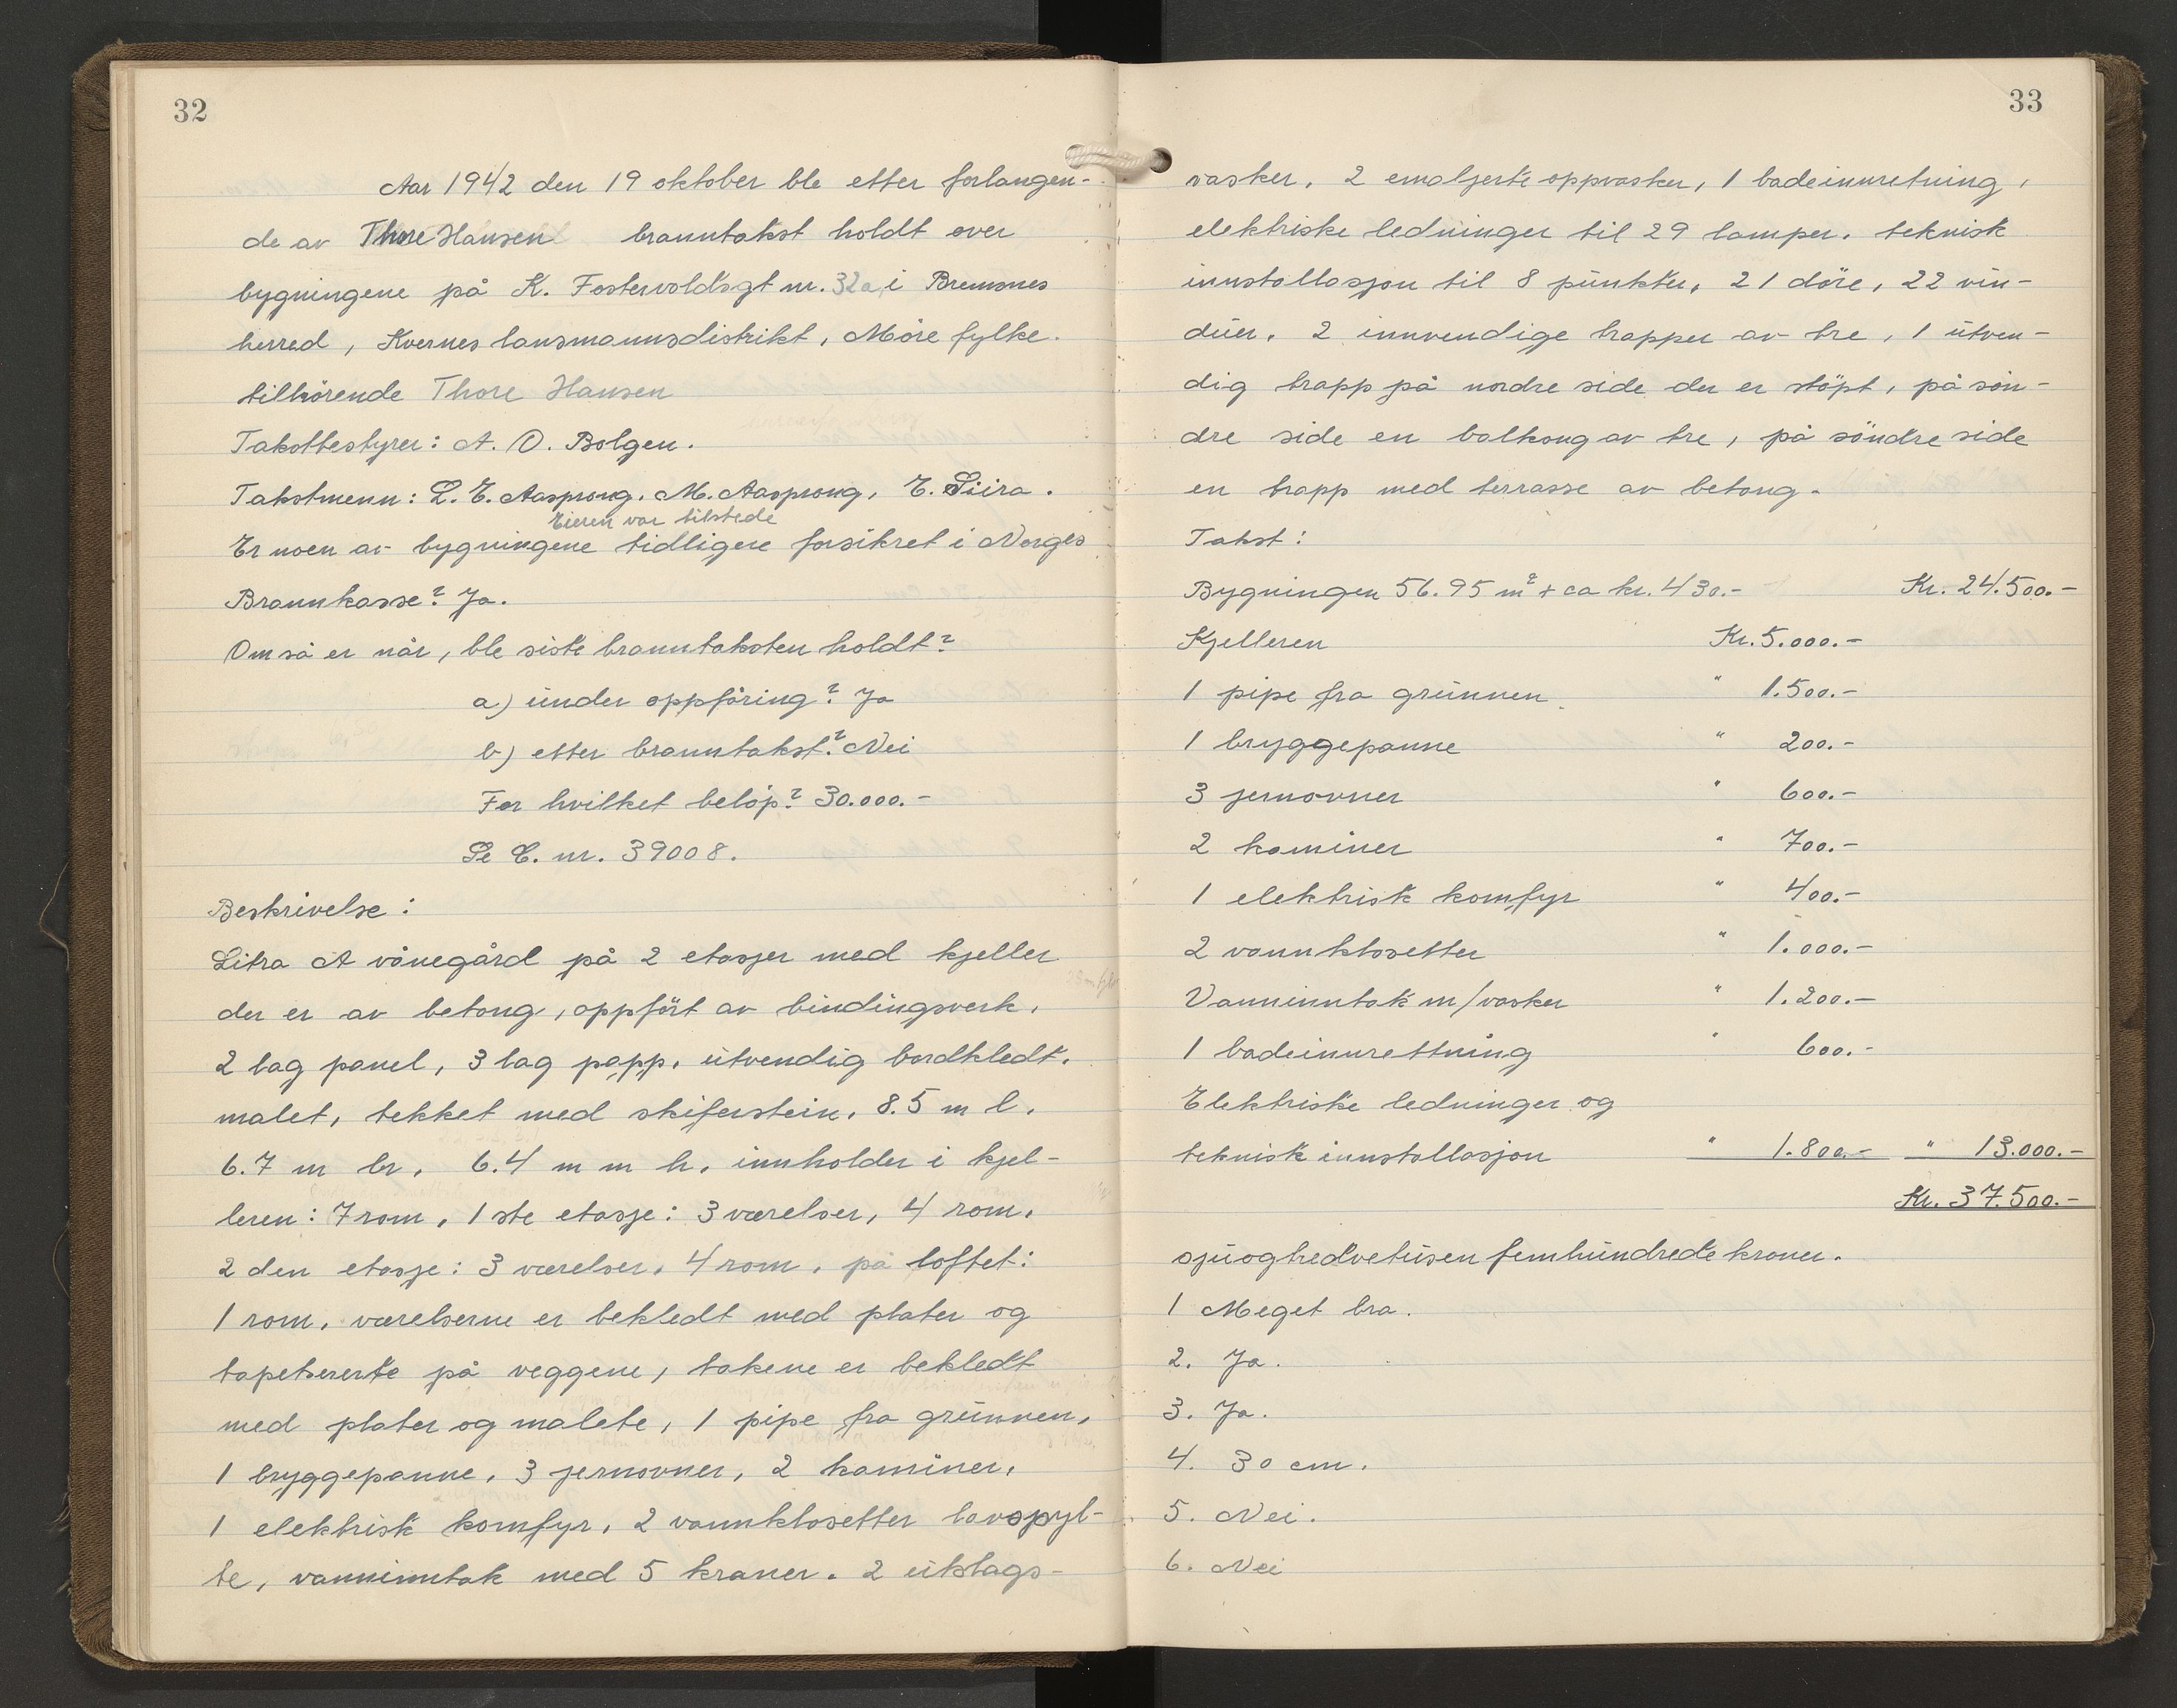 32
Aar 1942 den 19 oktober ble etter forlangen-
de av Thore Hansen branntakst holdt over
bygningene på K. Fostervoldsgt nr. 32a i Bremsnes
herred, Kvernes lansmannsdistrikt, Möre fylke.
tilhörende Thore Hansen
Takstbestyrer: A. O. Bolgen.
Takstmenn: L. E. Aasprong. M. Aasprong, E. Siira.
Eieren var tilstede
Er noen av bygningene tidligere forsikret i Norges
Brannkasse? Ja.
Om så er når, ble siste branntaksten holdt?
a) under oppföring? Ja
b) etter branntakst? Nei
For hvilket belöp? 30.000.-
Se C. nr. 39008.
Beskrivelse:
Litra A vånegård på 2 etasjer med kjeller
der er av betong, oppfört av bindingsverk,
2 lag panel, 3 lag papp, utvendig bordkledt,
malet, tekket med skiferstein, 8.5 m l,
6.7 m br, 6.4 m m h, innholder i kjel-
leren: 7 rom, 1 ste etasje: 3 værelser, 4 rom,
2 den etasje: 3 værelser, 4 rom, på loftet:
1 rom, værelserne er bekledt med plater og
tapetsererte på veggene, takene er bekledt
med plater og malete, 1 pipe fra grunnen,
1 bryggepanne, 3 jernovner, 2 kaminer,
1 elektrisk komfyr, 2 vannklosetter lavspyl-
te, vanninntak med 5 kraner. 2 utslags-
33
vasker, 2 emaljerte oppvasker, 1 badeinnretning,
elektriske ledninger til 29 lamper, teknisk
innstallasjon til 8 punkter, 21 döre, 22 vin-
duer, 2 innvendige trapper av tre, 1 utven-
dig trapp på nordre side der er stöpt, på sön-
dre side en balkong av tre, på söndre side
en trapp med terrasse av betong.
Takst:
Bygningen 56.95 m² + ca kr. 430.- Kr. 24.500.-
Kjelleren Kr. 5.000.-
1 pipe fra grunnen " 1.500.-
1 bryggepanne " 200.-
3 jernovner " 600.-
2 kaminer " 700.-
1 elektrisk komfyr " 400.-
2 vannklosetter " 1.000.-
Vanninntak m/vasker " 1.200.-
1 badeinnrettning " 600.-
Elektriske ledninger og
teknisk innstallasjon " 1.800.- " 13.000.-
Kr. 37.500.-
sjuogtredvetusen femhundrede kroner.
1 Meget bra.
2. Ja.
3. Ja.
4. 30 cm.
5. Nei.
6. Nei